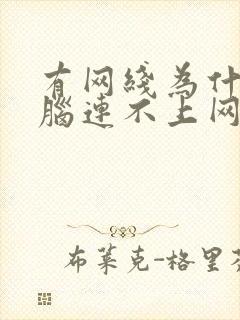 有网线为什
脑连不上网
布莱克-格里